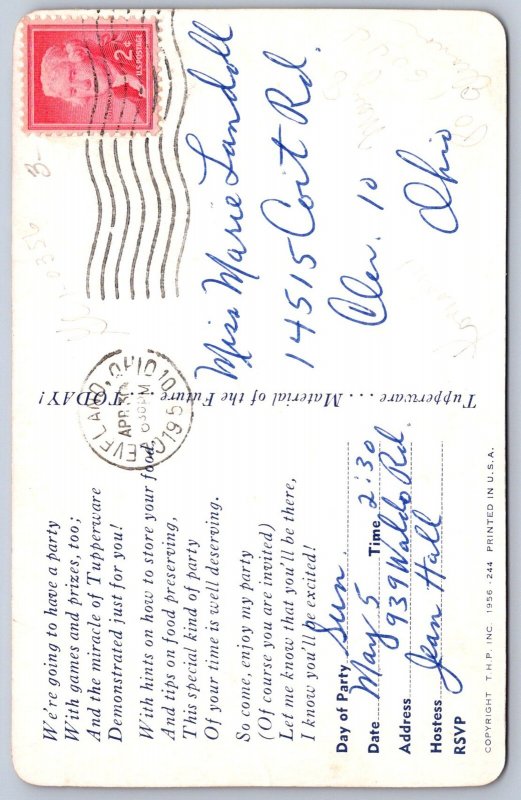 We're going to have a party
With games and prizes, too;
And the miracle of Tupperware
Demonstrated just for you!
With hints on how to store your food,
And tips on food preserving,
This special kind of party
Of your time is well deserving.
So come, enjoy my party
(Of course you are invited)
Let me know that you'll be there,
I know you'll be excited!
Day of Party Sun.
Date May 5 Time 2:30
Address 939 Waldo Rd.
Hostess Jean Hall
RSVP
COPYRIGHT T.H.P. INC. 1956 -244 PRINTED IN U.S.A.
Tupperware . . . . Material of the Future . . . TODAY!
CLEVELAND, OHIO 10
APR
630 PM
195
2¢
U.S. POSTAGE
Miss Marie Landoll
14515 Coit Rd.
Clev. 10
Ohio
3-